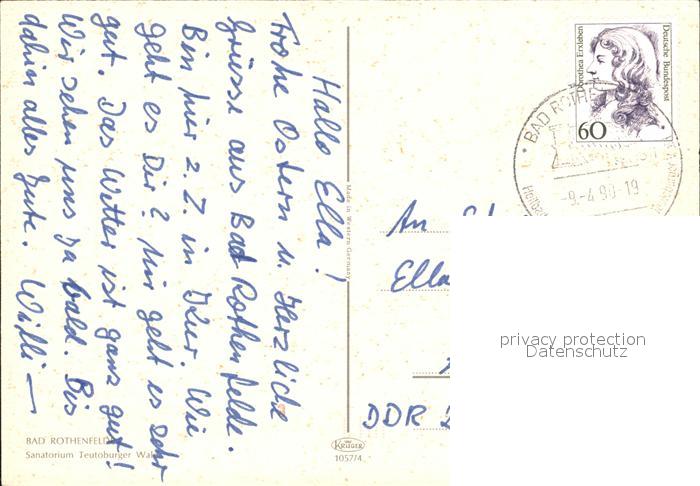 Hallo Ella!
Frohe Ostern u. Herzliche
Grüsse aus Bad Rothenfelde.
Bin hier z. Z. in Kur. Wie
geht es Dir? Mir geht es sehr
gut. Das Wetter ist ganz gut!
Wir sehen uns ja bald. Bis
dahin alles Gute. Willi
BAD ROTHENFELDE
Sanatorium Teutoburger Wald
Made in Western Germany
KRÜGER
1057/4
Dorothea Erxleben
Deutsche Bundespost
60
BAD ROTHE
-9.-4.90-19
An
Ella
DDR
privacy protection
Datenschutz